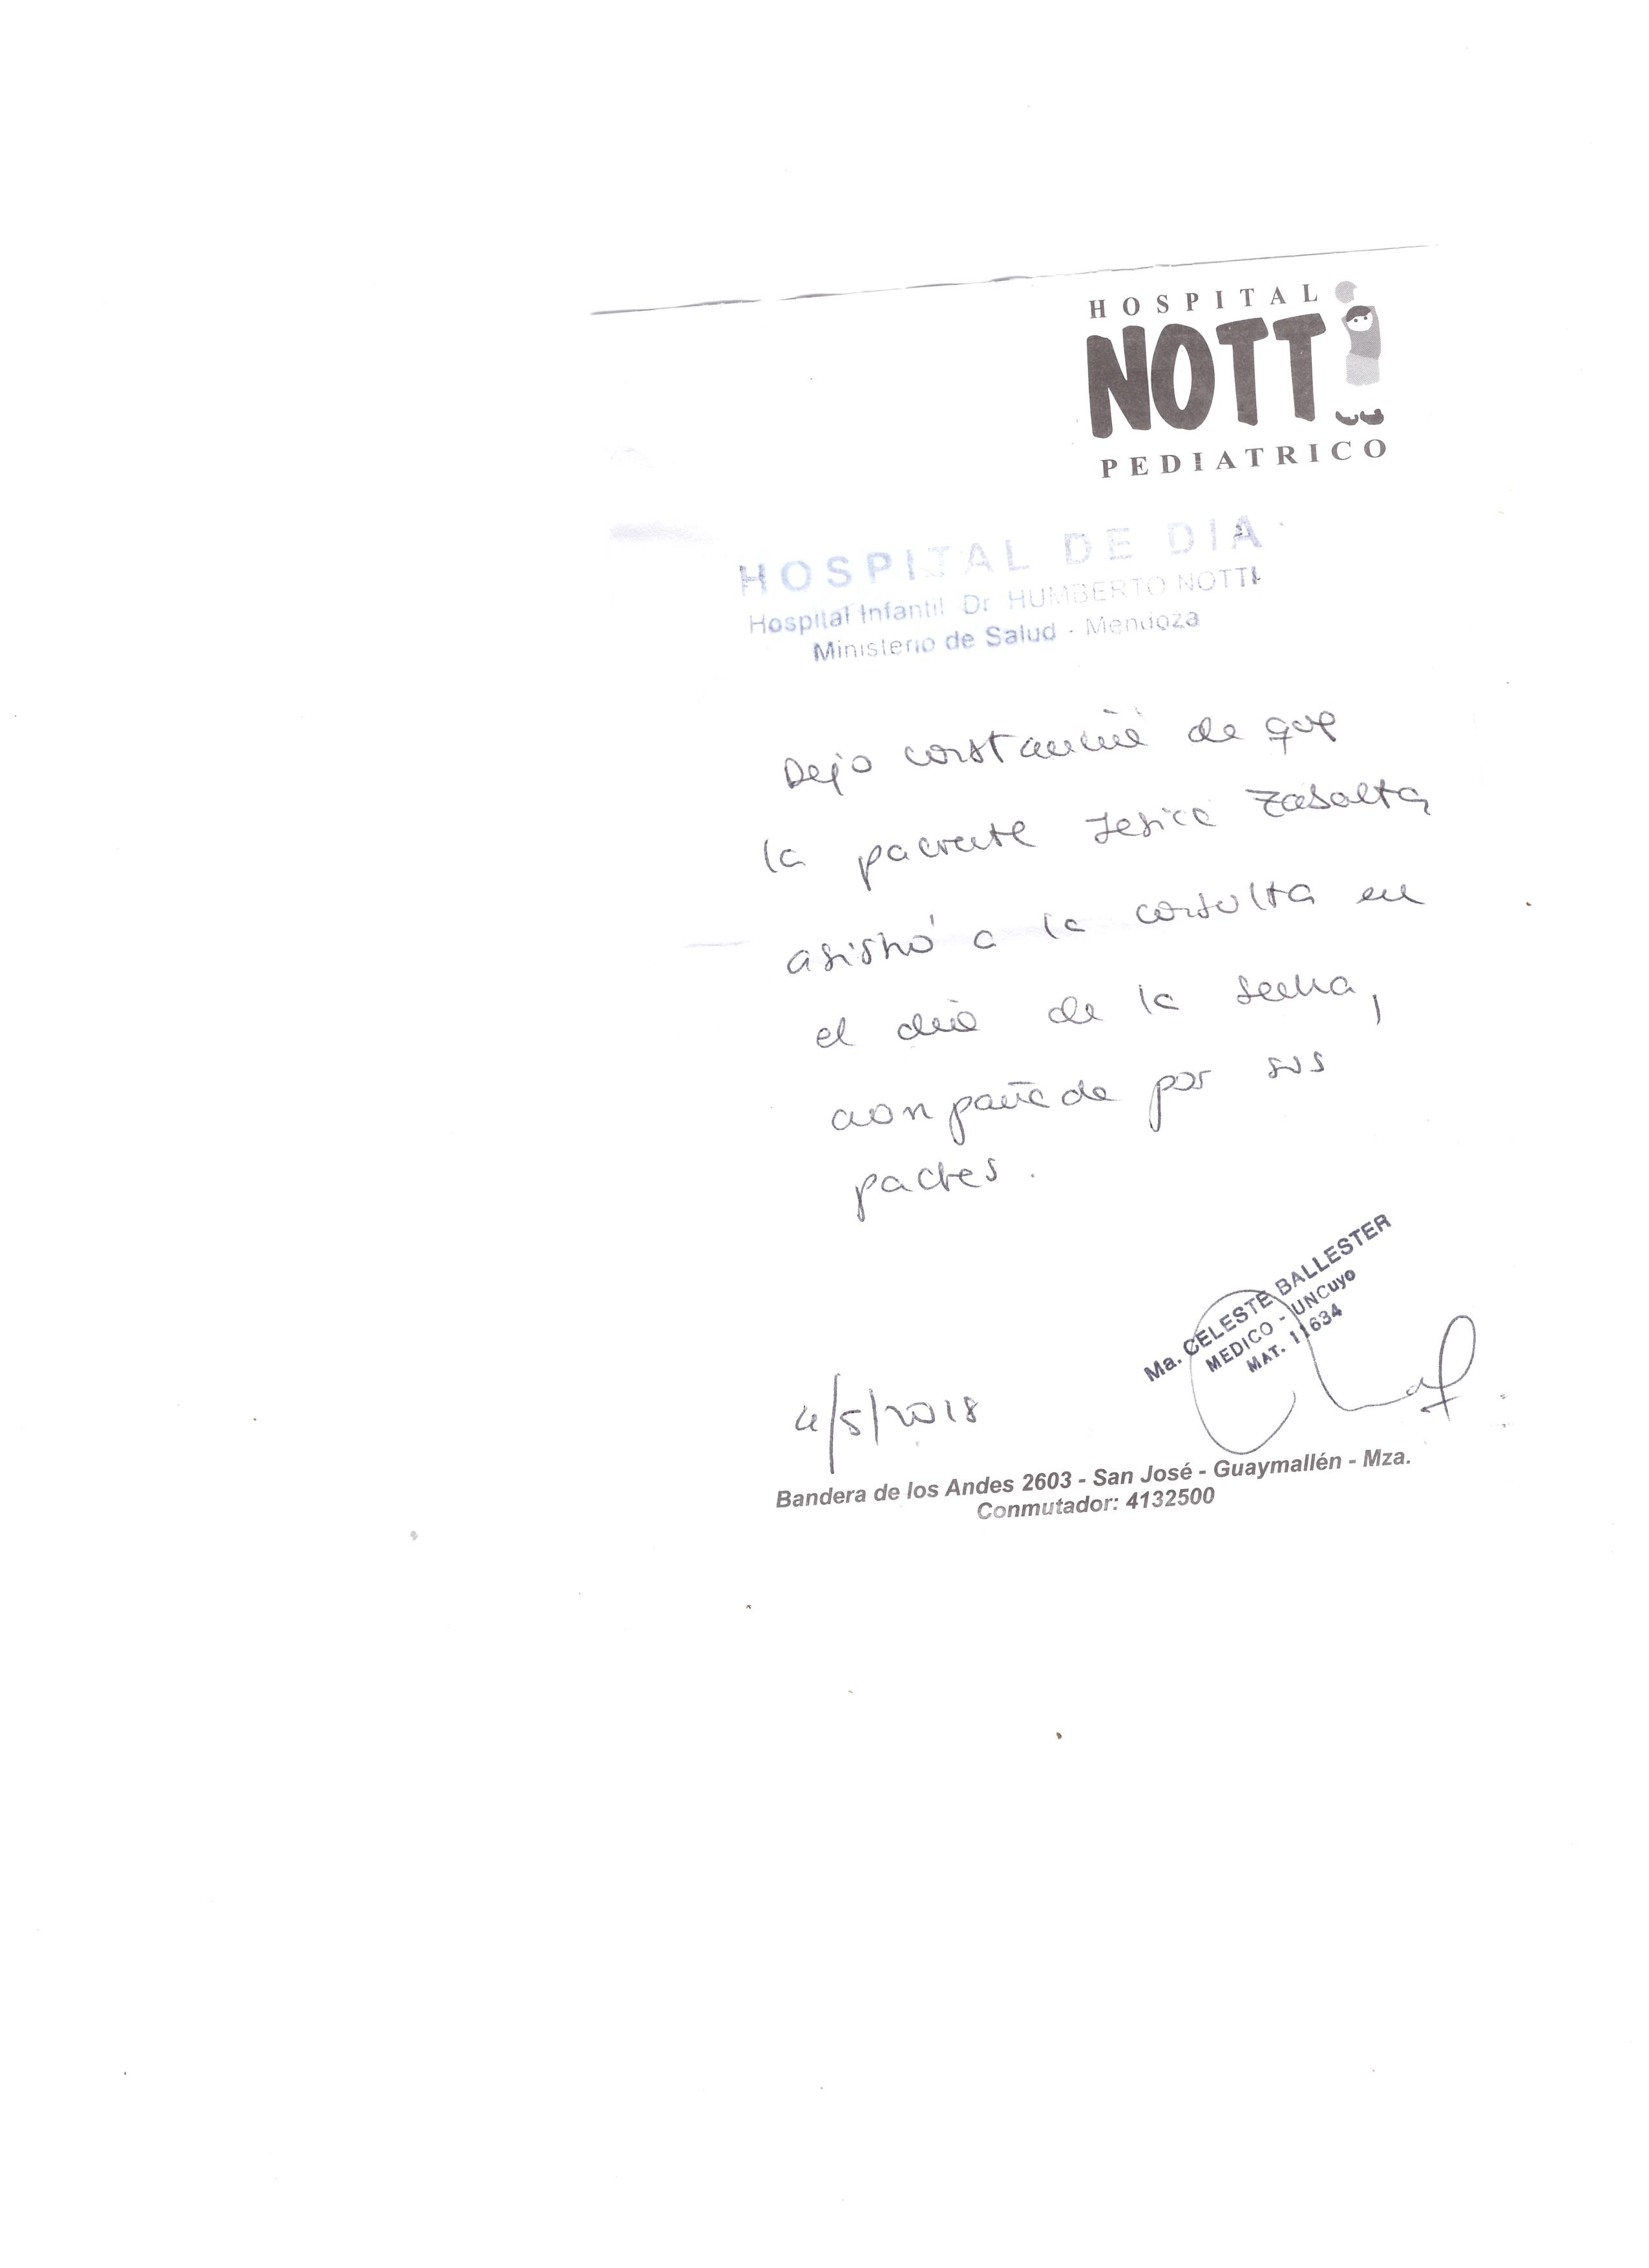 HOSPITAL
NOTTI
PEDIATRICO
HOSPITAL DE DIA
Hospital Infantil Dr HUMBERTO NOTTI
Ministerio de Salud - Mendoza
Dejo constancia de que
la paciente Jesica Zabalta
asistió a la consulta en
el día de la fecha,
acompañada por sus
padres.
Ma. CELESTE BALLESTER
MEDICO - UNCuyo
MAT. 11634
4/5/2018
Bandera de los Andes 2603 - San José - Guaymallén - Mza.
Conmutador: 4132500